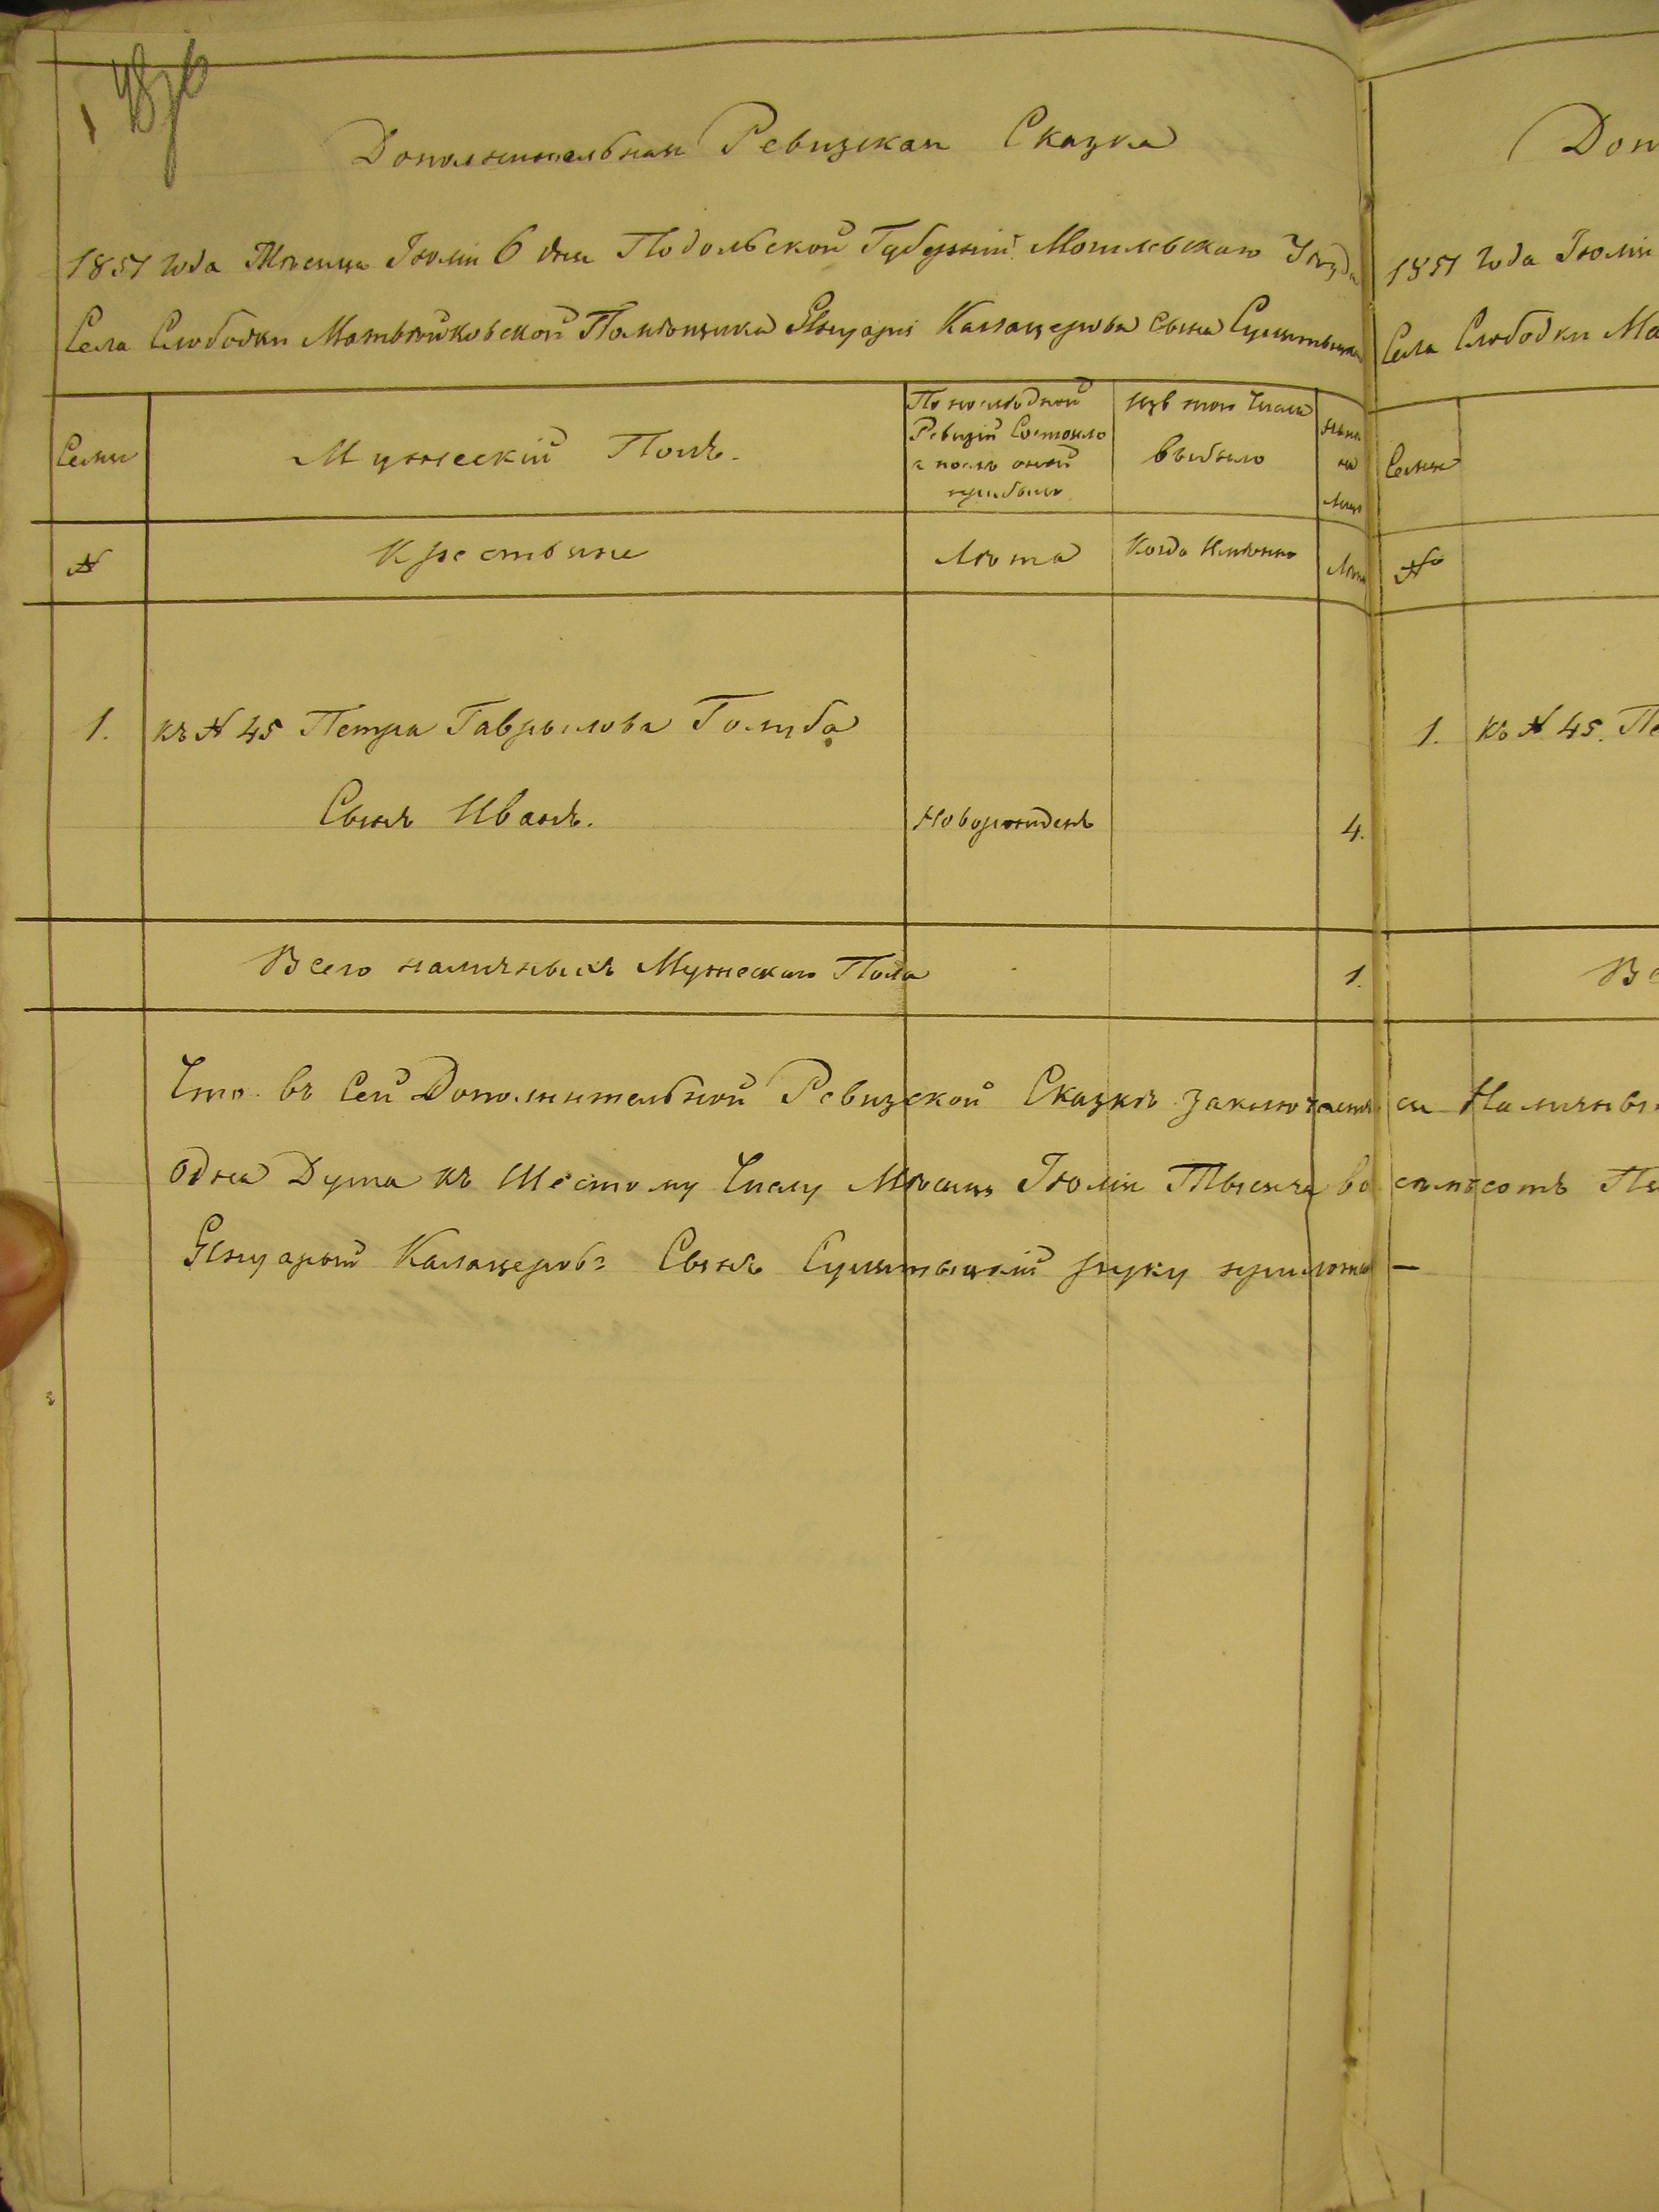 Дополнительная Ревизская Сказка
1851 года Месяца Іюля 6 дня Подольской Губерніи Могилевскаго Уезда
Села Слободки Матвѣйковской Помѣщика Януарія Калацерова сына
Семьи
Мужескій Полъ.
По послѣдной
Ревизіи Состояло
и послѣ оной
прибыло
Изъ того Числа
выбыло
Нынѣ
на
лицо
№
Крестьяне
Лѣта
Когда Имянно
Лѣта
1. къ № 45 Петра Гаврылова Голуба
Сынъ Иванъ. Новорожденъ 4.
Всего наличныхъ Мужеска Пола 1.
Что въ Сей Дополнительной Ревизской Сказкѣ заключается Наличны
одна Душа къ Шестому Числу Мѣсяца Іюля Тысяча восемьсотъ
Януарый Калацеровъ Сынъ руку приложилъ —
Доп
1851 года Іюля
Села Слободки Ма
Семьи
№
1. Къ № 45. Пе
Вс